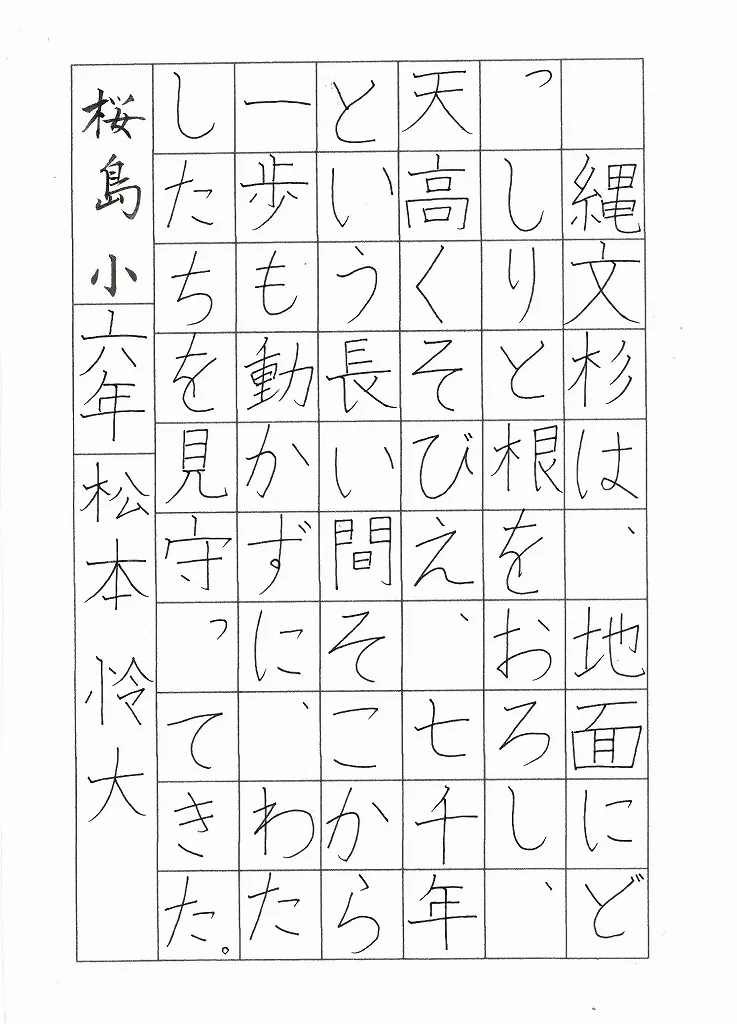 縄文杉は、地面にど
っしりと根をおろし、
天高くそびえ、七千年
という長い間そこから
一歩も動かずに、わた
したちを見守ってきた。
桜島小六年松本怜大